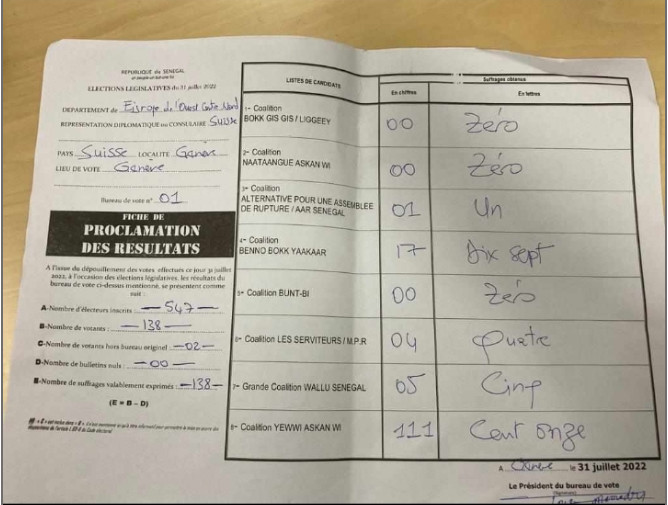 REPUBLIQUE du SENEGAL
ELECTIONS LEGISLATIVES du 31 juillet 2022
DEPARTEMENT de Europe de l'Ouest Centre Nord
REPRESENTATION DIPLOMATIQUE ou CONSULAIRE Suisse
PAYS Suisse LOCALITE Genève
LIEU DE VOTE Genève
Bureau de vote n° 01
FICHE DE
PROCLAMATION
DES RESULTATS
A l'issue du dépouillement des votes effectués ce jour 31 juillet
2022, à l'occasion des élections législatives, les résultats du
bureau de vote ci-dessus mentionné, se présentent comme
suit :
A-Nombre d'électeurs inscrits : 547
B-Nombre de votants : 138
C-Nombre de votants hors bureau originel : 02
D-Nombre de bulletins nuls : 00
E-Nombre de suffrages valablement exprimés : 138
(E = B – D)
LISTES DE CANDIDATS
Suffrages obtenus
En chiffres
En lettres
1- Coalition
BOKK GIS GIS / LIGGEEY
00
Zéro
2- Coalition
NAATAANGUE ASKAN WI
00
Zéro
3- Coalition
ALTERNATIVE POUR UNE ASSEMBLEE
DE RUPTURE / AAR SENEGAL
01
Un
4- Coalition
BENNO BOKK YAAKAAR
17
Dix sept
5- Coalition BUNT-BI
00
Zéro
6- Coalition LES SERVITEURS / M.P.R
04
Quatre
7- Grande Coalition WALLU SENEGAL
05
Cinq
8- Coalition YEWWI ASKAN WI
111
Cent onze
A le 31 juillet 2022
Le Président du bureau de vote